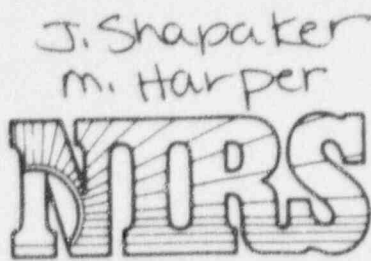 J. Shapaker
M. Harper
NIRS